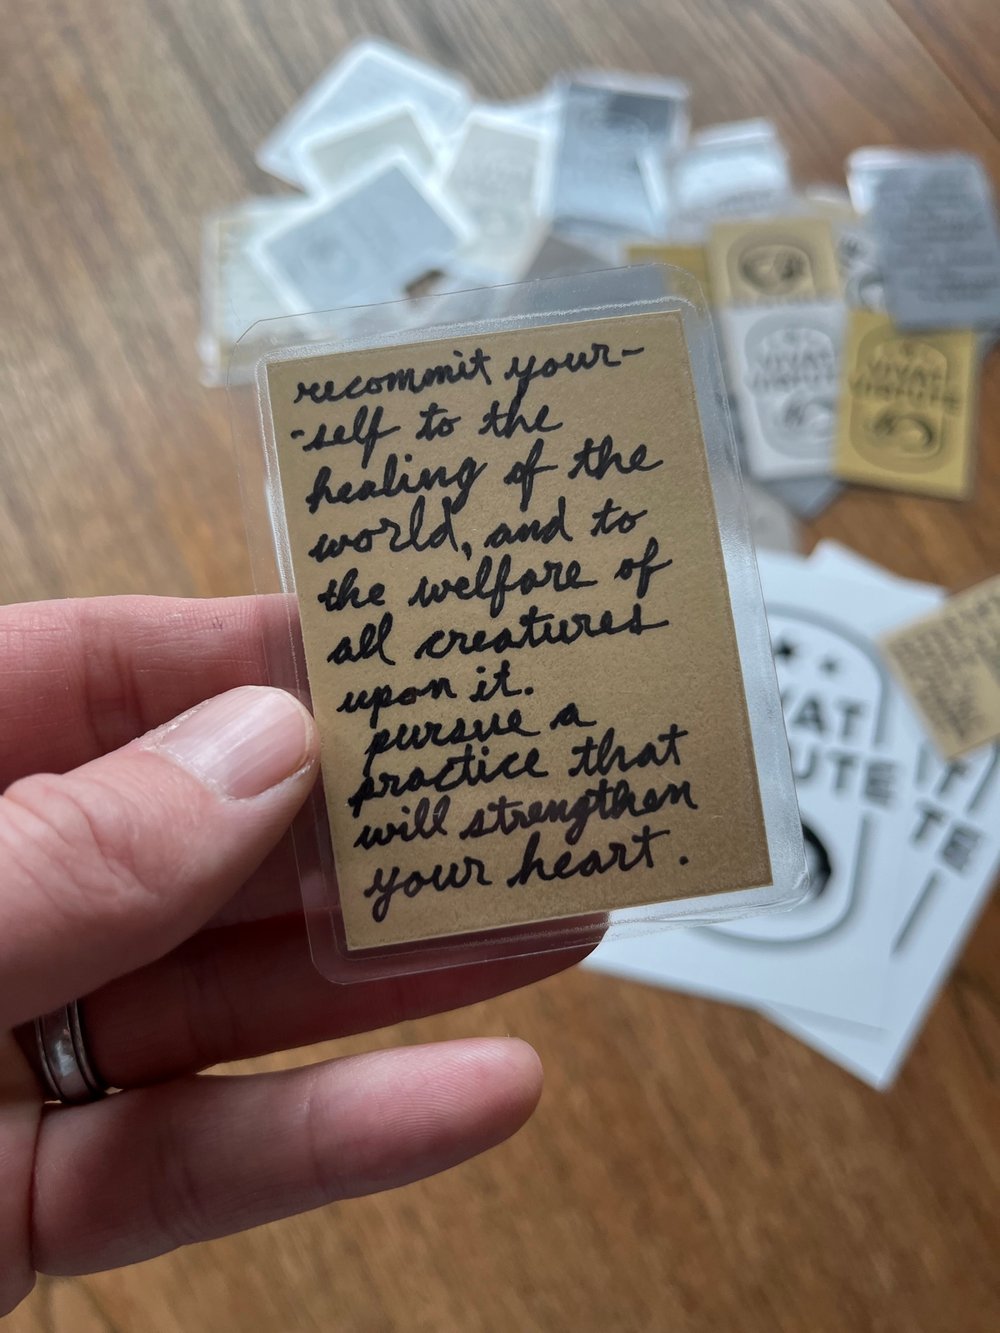 recommit your-
-self to the
healing of the
world, and to
the welfare of
all creatures
upon it.
pursue a
practice that
will strengthen
your heart.
VIVAT
VIVAT
VAT
UTE
TE